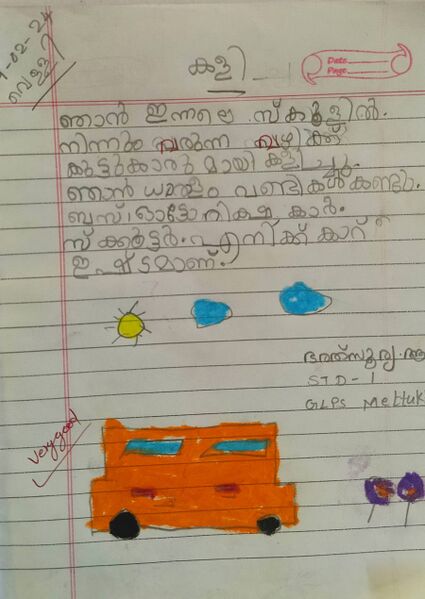 -02-24
വെള്ളി
Date
Page
കളി
ഞാൻ ഇന്നലെ സ്കൂളിൽ.
നിന്നും വരുന്ന വഴിക്ക്
കൂട്ടുകാരുമായി കളിച്ചു.
ഞാൻ ധാരാളം വണ്ടികൾ കണ്ടു.
ബസ്, ഓട്ടോറിക്ഷ, കാർ.
സ്ക്കൂട്ടർ. എനിക്ക് കാറ്
ഇഷ്ട്ടമാണ്.
STD-1
GLPS
Very good